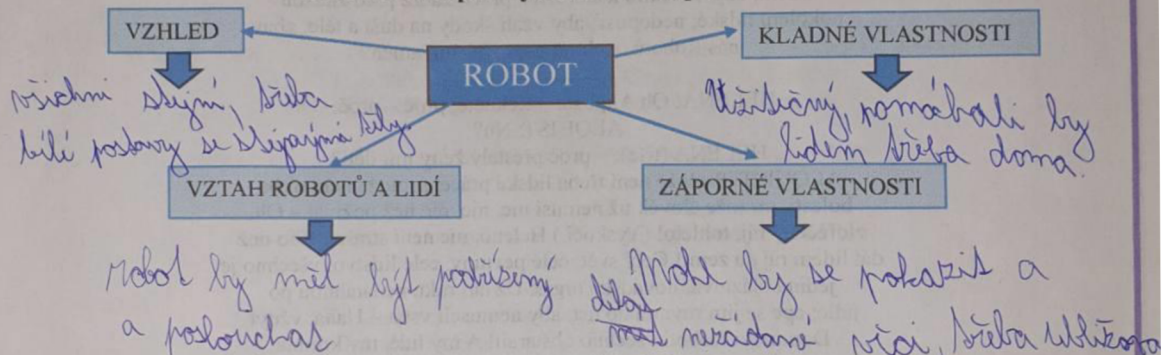 VZHLED
KLADNÉ VLASTNOSTI
ROBOT
všichni stejní, třeba
bílé postavy se stejnýma
Užitečný, pomáhali by
lidem třeba doma.
VZTAH ROBOTŮ A LIDÍ
ZÁPORNÉ VLASTNOSTI
robot by měl být podřízený
a poslouchat
Mohl by se pokazit a
dělat
nežádané věci, třeba